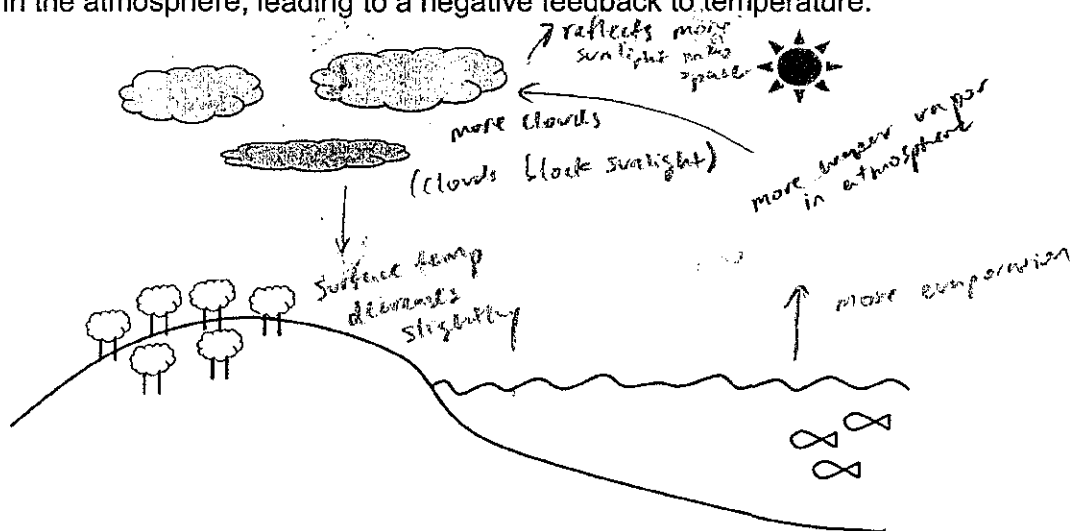 in the atmosphere, leading to a negative feedback to temperature.
reflects more
sunlight into
space
more clouds
(clouds block sunlight)
more water vapor
in atmosphere
surface temp
decreases
slightly
more evaporation